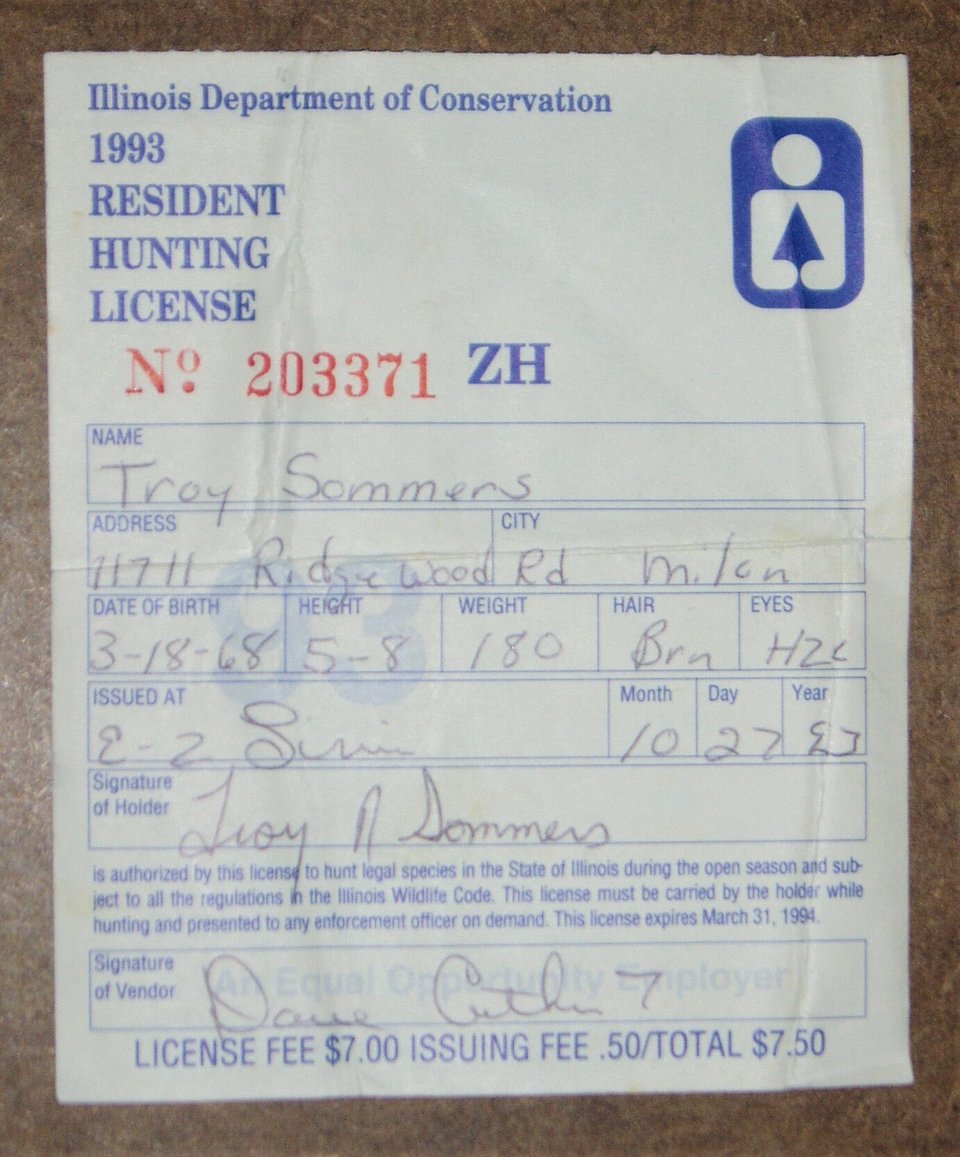 Illinois Department of Conservation
1993
RESIDENT
HUNTING
LICENSE
Nº 203371 ZH
NAME
Troy Sommers
ADDRESS CITY
11711 Ridgewood Rd Milan
DATE OF BIRTH HEIGHT WEIGHT HAIR EYES
3-18-68 5-8 180 Brn HZL
93
ISSUED AT Month Day Year
E-Z 10 27
Signature
of Holder
Troy A Sommers
is authorized by this license to hunt legal species in the State of Illinois during the open season and sub-
ject to all the regulations in the Illinois Wildlife Code. This license must be carried by the holder while
hunting and presented to any enforcement officer on demand. This license expires March 31, 1994.
Signature
of Vendor
An Equal Opportunity Employer
LICENSE FEE $7.00 ISSUING FEE .50/TOTAL $7.50